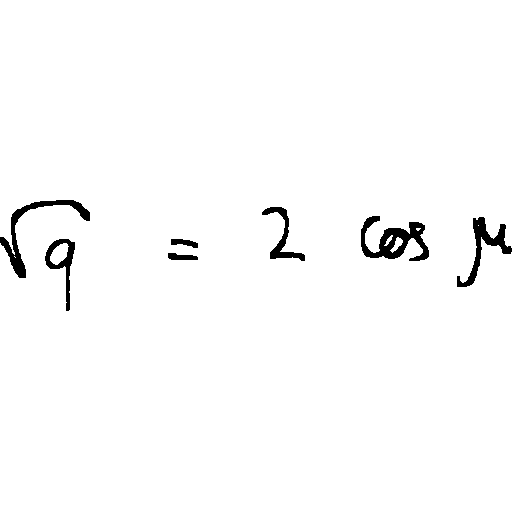 √q = 2 cos μ